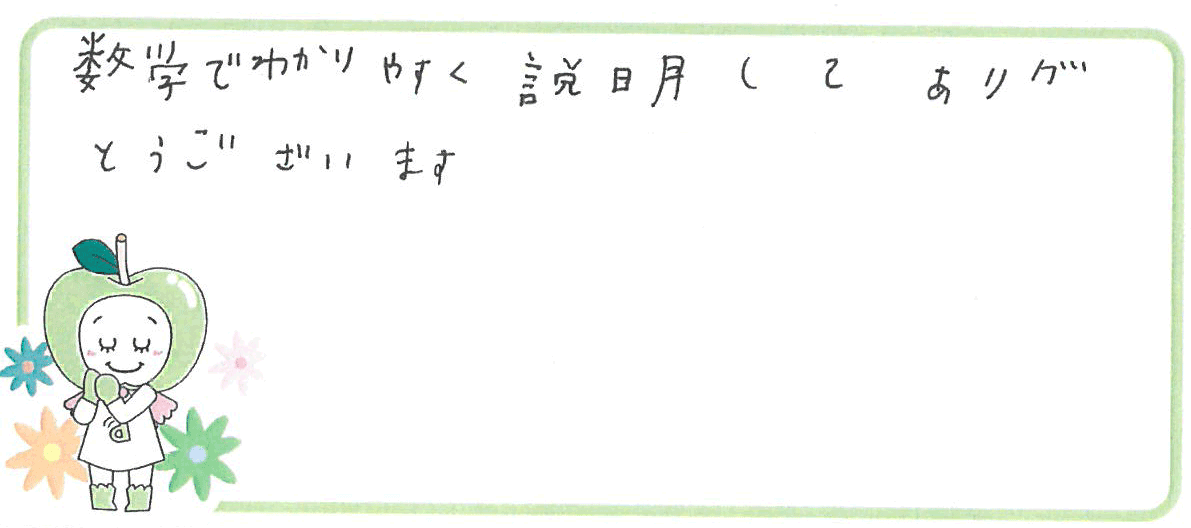 数学でわかりやすく説明してありが
とうございます